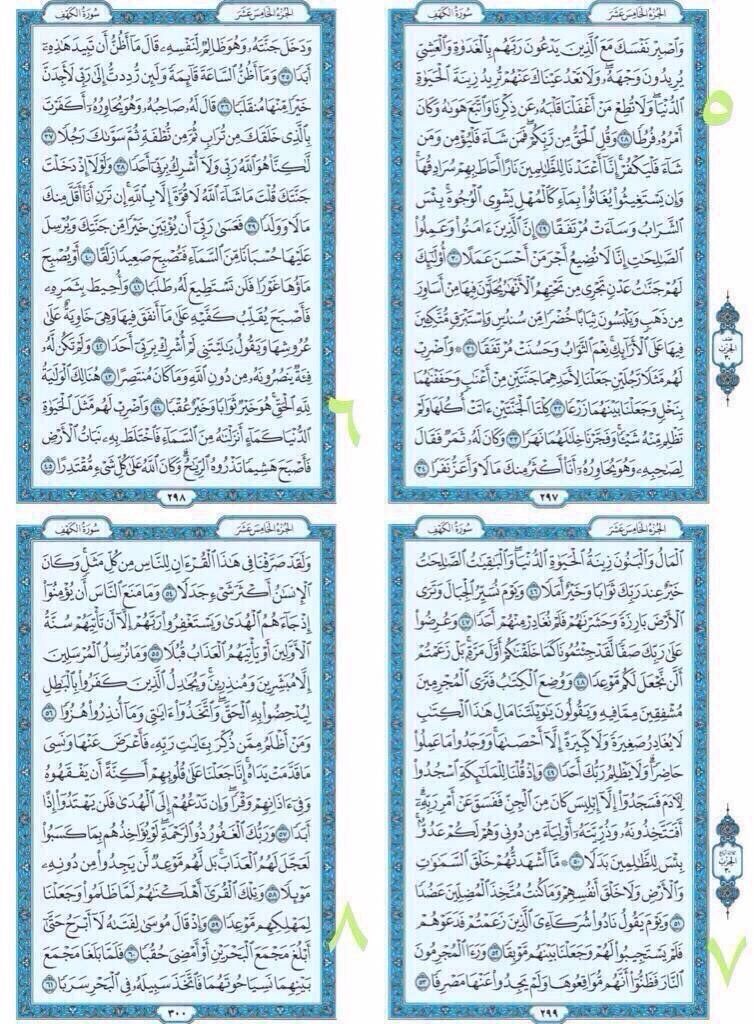 الجزء الخامس عشر
سورة الكهف
وَاصْبِرْ نَفْسَكَ مَعَ الَّذِينَ يَدْعُونَ رَبَّهُم بِالْغَدَوٰةِ وَالْعَشِيِّ
يُرِيدُونَ وَجْهَهُۥ وَلَا تَعْدُ عَيْنَاكَ عَنْهُمْ تُرِيدُ زِينَةَ الْحَيَوٰةِ
الدُّنْيَا وَلَا تُطِعْ مَنْ أَغْفَلْنَا قَلْبَهُۥ عَن ذِكْرِنَا وَاتَّبَعَ هَوَىٰهُ وَكَانَ
أَمْرُهُۥ فُرُطًا ٢٨ وَقُلِ الْحَقُّ مِن رَّبِّكُمْ فَمَن شَآءَ فَلْيُؤْمِن وَمَن
شَآءَ فَلْيَكْفُرْ إِنَّآ أَعْتَدْنَا لِلظَّٰلِمِينَ نَارًا أَحَاطَ بِهِمْ سُرَادِقُهَا
وَإِن يَسْتَغِيثُوا۟ يُغَاثُوا۟ بِمَآءٍ كَالْمُهْلِ يَشْوِي الْوُجُوهَ بِئْسَ
الشَّرَابُ وَسَآءَتْ مُرْتَفَقًا ٢٩ إِنَّ الَّذِينَ ءَامَنُوا۟ وَعَمِلُوا۟
الصَّٰلِحَٰتِ إِنَّا لَا نُضِيعُ أَجْرَ مَنْ أَحْسَنَ عَمَلًا ٣٠ أُو۟لَٰٓئِكَ
لَهُمْ جَنَّٰتُ عَدْنٍ تَجْرِي مِن تَحْتِهِمُ الْأَنْهَٰرُ يُحَلَّوْنَ فِيهَا مِنْ أَسَاوِرَ
مِن ذَهَبٍ وَيَلْبَسُونَ ثِيَابًا خُضْرًا مِّن سُندُسٍ وَإِسْتَبْرَقٍ مُّتَّكِـِٔينَ
فِيهَا عَلَى الْأَرَآئِكِ نِعْمَ الثَّوَابُ وَحَسُنَتْ مُرْتَفَقًا ٣١ ۞ وَاضْرِبْ
لَهُم مَّثَلًا رَّجُلَيْنِ جَعَلْنَا لِأَحَدِهِمَا جَنَّتَيْنِ مِنْ أَعْنَٰبٍ وَحَفَفْنَٰهُمَا
بِنَخْلٍ وَجَعَلْنَا بَيْنَهُمَا زَرْعًا ٣٢ كِلْتَا الْجَنَّتَيْنِ ءَاتَتْ أُكُلَهَا وَلَمْ
تَظْلِم مِّنْهُ شَيْـًٔا وَفَجَّرْنَا خِلَٰلَهُمَا نَهَرًا ٣٣ وَكَانَ لَهُۥ ثَمَرٌ فَقَالَ
لِصَٰحِبِهِۦ وَهُوَ يُحَاوِرُهُۥٓ أَنَا۠ أَكْثَرُ مِنكَ مَالًا وَأَعَزُّ نَفَرًا ٣٤
٢٩٧
٥
الجزء الخامس عشر
سورة الكهف
وَدَخَلَ جَنَّتَهُۥ وَهُوَ ظَالِمٌ لِّنَفْسِهِۦ قَالَ مَآ أَظُنُّ أَن تَبِيدَ هَٰذِهِۦٓ
أَبَدًا ٣٥ وَمَآ أَظُنُّ السَّاعَةَ قَآئِمَةً وَلَئِن رُّدِدتُّ إِلَىٰ رَبِّي لَأَجِدَنَّ
خَيْرًا مِّنْهَا مُنقَلَبًا ٣٦ قَالَ لَهُۥ صَاحِبُهُۥ وَهُوَ يُحَاوِرُهُۥٓ أَكَفَرْتَ
بِالَّذِي خَلَقَكَ مِن تُرَابٍ ثُمَّ مِن نُّطْفَةٍ ثُمَّ سَوَّىٰكَ رَجُلًا ٣٧
لَّٰكِنَّا۠ هُوَ اللَّهُ رَبِّي وَلَآ أُشْرِكُ بِرَبِّيٓ أَحَدًا ٣٨ وَلَوْلَآ إِذْ دَخَلْتَ
جَنَّتَكَ قُلْتَ مَا شَآءَ اللَّهُ لَا قُوَّةَ إِلَّا بِاللَّهِ إِن تَرَنِ أَنَا۠ أَقَلَّ مِنكَ
مَالًا وَوَلَدًا ٣٩ فَعَسَىٰ رَبِّيٓ أَن يُؤْتِيَنِ خَيْرًا مِّن جَنَّتِكَ وَيُرْسِلَ
عَلَيْهَا حُسْبَانًا مِّنَ السَّمَآءِ فَتُصْبِحَ صَعِيدًا زَلَقًا ٤٠ أَوْ يُصْبِحَ
مَآؤُهَا غَوْرًا فَلَن تَسْتَطِيعَ لَهُۥ طَلَبًا ٤١ وَأُحِيطَ بِثَمَرِهِۦ
فَأَصْبَحَ يُقَلِّبُ كَفَّيْهِ عَلَىٰ مَآ أَنفَقَ فِيهَا وَهِيَ خَاوِيَةٌ عَلَىٰ
عُرُوشِهَا وَيَقُولُ يَٰلَيْتَنِي لَمْ أُشْرِكْ بِرَبِّيٓ أَحَدًا ٤٢ وَلَمْ تَكُن لَّهُۥ
فِئَةٌ يَنصُرُونَهُۥ مِن دُونِ اللَّهِ وَمَا كَانَ مُنتَصِرًا ٤٣ هُنَالِكَ الْوَلَٰيَةُ
لِلَّهِ الْحَقِّ هُوَ خَيْرٌ ثَوَابًا وَخَيْرٌ عُقْبًا ٤٤ وَاضْرِبْ لَهُم مَّثَلَ الْحَيَوٰةِ
الدُّنْيَا كَمَآءٍ أَنزَلْنَٰهُ مِنَ السَّمَآءِ فَاخْتَلَطَ بِهِۦ نَبَاتُ الْأَرْضِ
فَأَصْبَحَ هَشِيمًا تَذْرُوهُ الرِّيَٰحُ وَكَانَ اللَّهُ عَلَىٰ كُلِّ شَيْءٍ مُّقْتَدِرًا ٤٥
٢٩٨
٦
الجزء الخامس عشر
سورة الكهف
الْمَالُ وَالْبَنُونَ زِينَةُ الْحَيَوٰةِ الدُّنْيَا وَالْبَٰقِيَٰتُ الصَّٰلِحَٰتُ
خَيْرٌ عِندَ رَبِّكَ ثَوَابًا وَخَيْرٌ أَمَلًا ٤٦ وَيَوْمَ نُسَيِّرُ الْجِبَالَ وَتَرَى
الْأَرْضَ بَارِزَةً وَحَشَرْنَٰهُمْ فَلَمْ نُغَادِرْ مِنْهُمْ أَحَدًا ٤٧ وَعُرِضُوا۟
عَلَىٰ رَبِّكَ صَفًّا لَّقَدْ جِئْتُمُونَا كَمَا خَلَقْنَٰكُمْ أَوَّلَ مَرَّةٍ بَلْ زَعَمْتُمْ
أَلَّن نَّجْعَلَ لَكُم مَّوْعِدًا ٤٨ وَوُضِعَ الْكِتَٰبُ فَتَرَى الْمُجْرِمِينَ
مُشْفِقِينَ مِمَّا فِيهِ وَيَقُولُونَ يَٰوَيْلَتَنَا مَالِ هَٰذَا الْكِتَٰبِ
لَا يُغَادِرُ صَغِيرَةً وَلَا كَبِيرَةً إِلَّآ أَحْصَىٰهَا وَوَجَدُوا۟ مَا عَمِلُوا۟
حَاضِرًا وَلَا يَظْلِمُ رَبُّكَ أَحَدًا ٤٩ وَإِذْ قُلْنَا لِلْمَلَٰٓئِكَةِ اسْجُدُوا۟
لِأَدَمَ فَسَجَدُوٓا۟ إِلَّآ إِبْلِيسَ كَانَ مِنَ الْجِنِّ فَفَسَقَ عَنْ أَمْرِ رَبِّهِۦٓ
أَفَتَتَّخِذُونَهُۥ وَذُرِّيَّتَهُۥٓ أَوْلِيَآءَ مِن دُونِي وَهُمْ لَكُمْ عَدُوٌّ
بِئْسَ لِلظَّٰلِمِينَ بَدَلًا ٥٠ ۞ مَّآ أَشْهَدتُّهُمْ خَلْقَ السَّمَٰوَٰتِ
وَالْأَرْضِ وَلَا خَلْقَ أَنفُسِهِمْ وَمَا كُنتُ مُتَّخِذَ الْمُضِلِّينَ عَضُدًا
٥١ وَيَوْمَ يَقُولُ نَادُوا۟ شُرَكَآءِيَ الَّذِينَ زَعَمْتُمْ فَدَعَوْهُمْ
فَلَمْ يَسْتَجِيبُوا۟ لَهُمْ وَجَعَلْنَا بَيْنَهُم مَّوْبِقًا ٥٢ وَرَءَا الْمُجْرِمُونَ
النَّارَ فَظَنُّوٓا۟ أَنَّهُم مُّوَاقِعُوهَا وَلَمْ يَجِدُوا۟ عَنْهَا مَصْرِفًا ٥٣
٢٩٩
٧
الجزء الخامس عشر
سورة الكهف
وَلَقَدْ صَرَّفْنَا فِي هَٰذَا الْقُرْءَانِ لِلنَّاسِ مِن كُلِّ مَثَلٍ وَكَانَ
الْإِنسَٰنُ أَكْثَرَ شَيْءٍ جَدَلًا ٥٤ وَمَا مَنَعَ النَّاسَ أَن يُؤْمِنُوٓا۟
إِذْ جَآءَهُمُ الْهُدَىٰ وَيَسْتَغْفِرُوا۟ رَبَّهُمْ إِلَّآ أَن تَأْتِيَهُمْ سُنَّةُ
الْأَوَّلِينَ أَوْ يَأْتِيَهُمُ الْعَذَابُ قُبُلًا ٥٥ وَمَا نُرْسِلُ الْمُرْسَلِينَ
إِلَّا مُبَشِّرِينَ وَمُنذِرِينَ وَيُجَٰدِلُ الَّذِينَ كَفَرُوا۟ بِالْبَٰطِلِ
لِيُدْحِضُوا۟ بِهِ الْحَقَّ وَاتَّخَذُوٓا۟ ءَايَٰتِي وَمَآ أُنذِرُوا۟ هُزُوًا ٥٦
وَمَنْ أَظْلَمُ مِمَّن ذُكِّرَ بِـَٔايَٰتِ رَبِّهِۦ فَأَعْرَضَ عَنْهَا وَنَسِيَ
مَا قَدَّمَتْ يَدَاهُ إِنَّا جَعَلْنَا عَلَىٰ قُلُوبِهِمْ أَكِنَّةً أَن يَفْقَهُوهُ
وَفِيٓ ءَاذَانِهِمْ وَقْرًا وَإِن تَدْعُهُمْ إِلَى الْهُدَىٰ فَلَن يَهْتَدُوٓا۟ إِذًا
أَبَدًا ٥٧ وَرَبُّكَ الْغَفُورُ ذُو الرَّحْمَةِ لَوْ يُؤَاخِذُهُم بِمَا كَسَبُوا۟
لَعَجَّلَ لَهُمُ الْعَذَابَ بَل لَّهُم مَّوْعِدٌ لَّن يَجِدُوا۟ مِن دُونِهِۦ
مَوْئِلًا ٥٨ وَتِلْكَ الْقُرَىٰٓ أَهْلَكْنَٰهُمْ لَمَّا ظَلَمُوا۟ وَجَعَلْنَا
لِمَهْلِكِهِم مَّوْعِدًا ٥٩ وَإِذْ قَالَ مُوسَىٰ لِفَتَىٰهُ لَآ أَبْرَحُ حَتَّىٰٓ
أَبْلُغَ مَجْمَعَ الْبَحْرَيْنِ أَوْ أَمْضِيَ حُقُبًا ٦٠ فَلَمَّا بَلَغَا مَجْمَعَ
بَيْنِهِمَا نَسِيَا حُوتَهُمَا فَاتَّخَذَ سَبِيلَهُۥ فِي الْبَحْرِ سَرَبًا ٦١
٣٠٠
٨